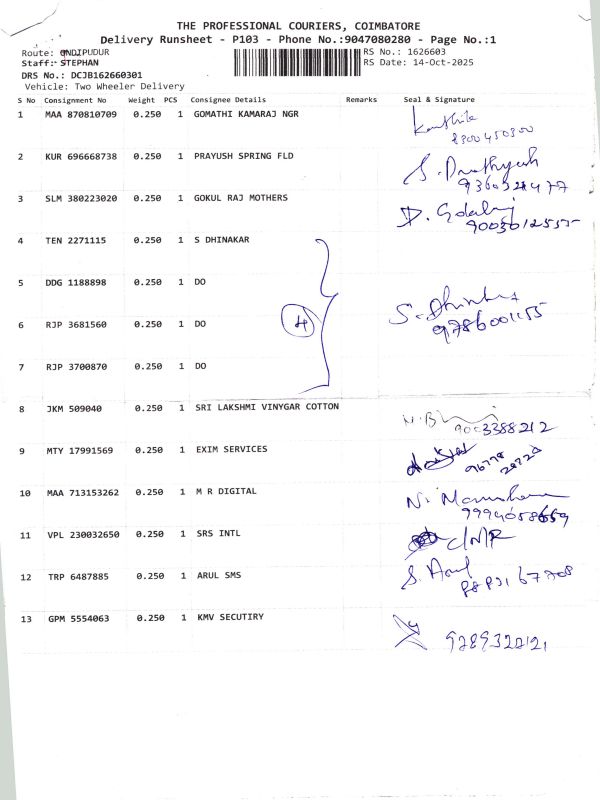 THE PROFESSIONAL COURIERS, COIMBATORE
Delivery Runsheet - P103 - Phone No.:9047080280 - Page No.:1
Route: UNDIPUDUR RS No.: 1626603
Staff: STEPHAN RS Date: 14-Oct-2025
DRS No.: DCJB162660301
Vehicle: Two Wheeler Delivery
S No Consignment No Weight PCS Consignee Details Remarks Seal & Signature
1 MAA 870810709 0.250 1 GOMATHI KAMARAJ NGR
8300450300
2 KUR 696668738 0.250 1 PRAYUSH SPRING FLD
3 SLM 380223020 0.250 1 GOKUL RAJ MOTHERS
9003012555
4 TEN 2271115 0.250 1 S DHINAKAR
5 DDG 1188898 0.250 1 DO
6 RJP 3681560 0.250 1 DO 4
9786001155
7 RJP 3700870 0.250 1 DO
8 JKM 509040 0.250 1 SRI LAKSHMI VINYGAR COTTON
9003388212
9 MTY 17991569 0.250 1 EXIM SERVICES
10 MAA 713153262 0.250 1 M R DIGITAL
11 VPL 230032650 0.250 1 SRS INTL
12 TRP 6487885 0.250 1 ARUL SMS
S. Arul
13 GPM 5554063 0.250 1 KMV SECUTIRY
9789322121